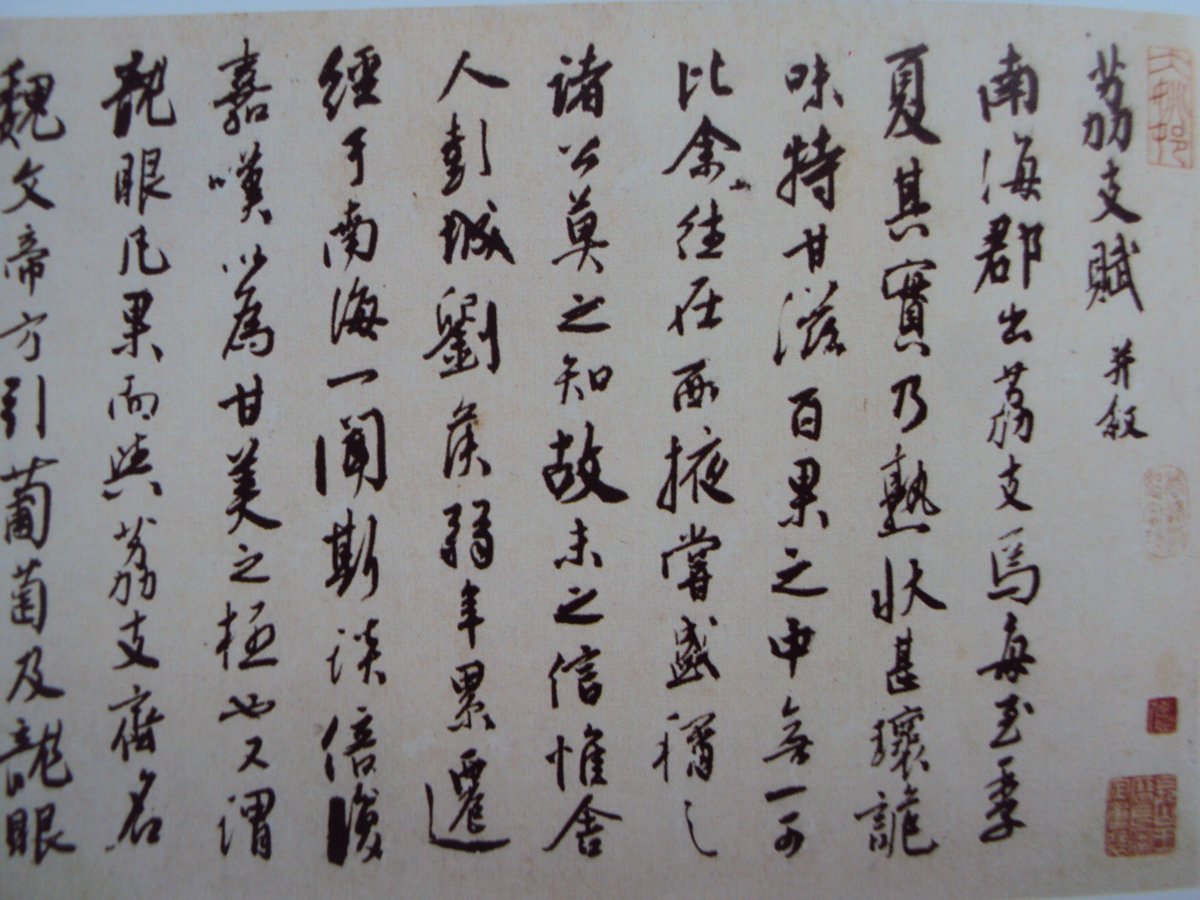 荔支賦 并叙
南海郡出荔支焉每至季
夏其實乃熟狀甚瓌詭
味特甘滋百果之中無一可
比余往在西掖嘗盛稱之
諸公莫之知故未之信惟舍
人彭城劉侯弱年累遷
經于南海一聞斯談倍復
嘉嘆以為甘美之極也又謂
龍眼凡果而與荔支齊名
魏文帝方引葡萄及龍眼